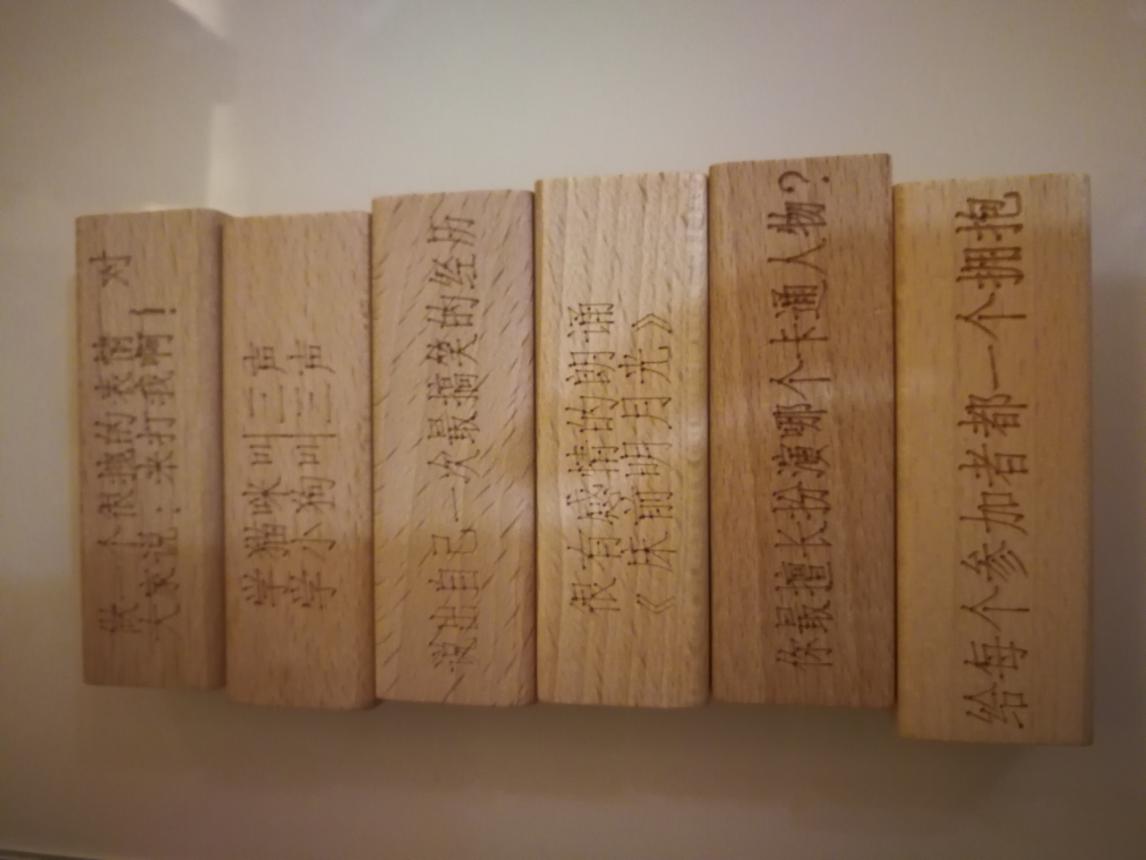 做一个很拽的表情 对
大家说：来打我啊！
学猫咪叫三声
学小狗叫三声
说出自己一次最搞笑的经历
很有感情的朗诵
《床前明月光》
你最擅长扮演哪个卡通人物？
给每个参加者都一个拥抱